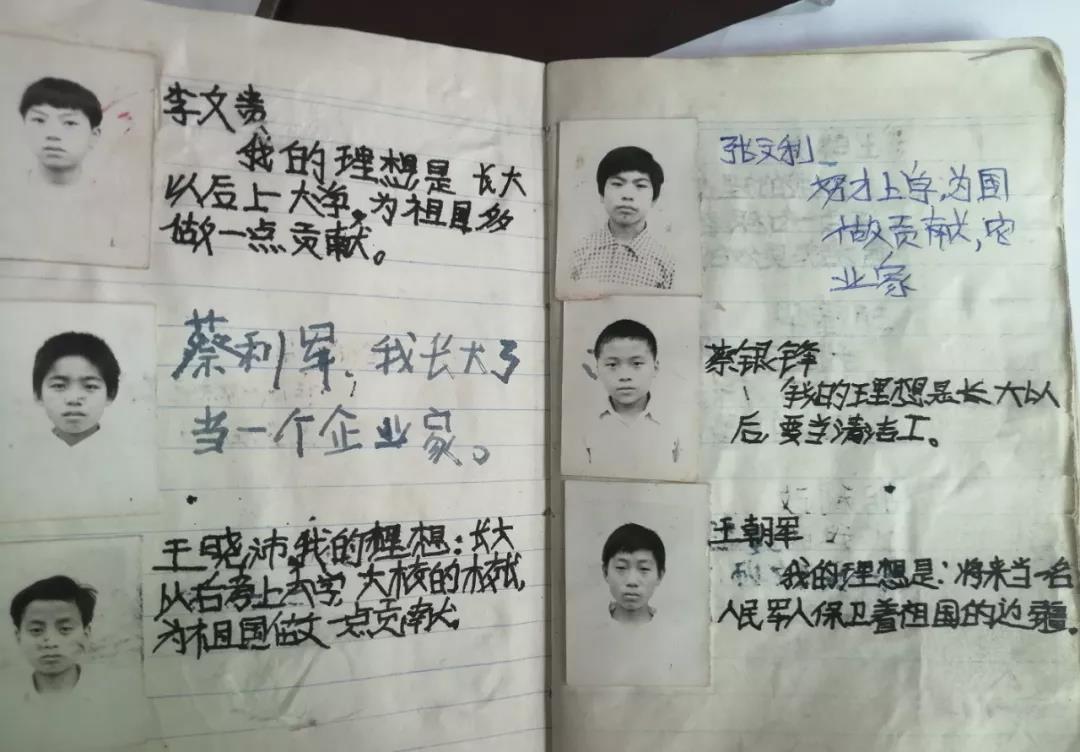 李文贵
我的理想是 长大
以后上大学,为祖国多
做一点贡献。
蔡利军,我长大了
当一个企业家。
王晓沛,我的理想:长大
以后考上大学 大校的校长
为祖国做一点贡献。
张文利
努才上学,为国
做贡献,农
业家
蔡银锋
我的理想是长大以
后,要当清洁工。
王朝军
我的理想是:将来当一名
人民军人保卫着祖国的边疆。